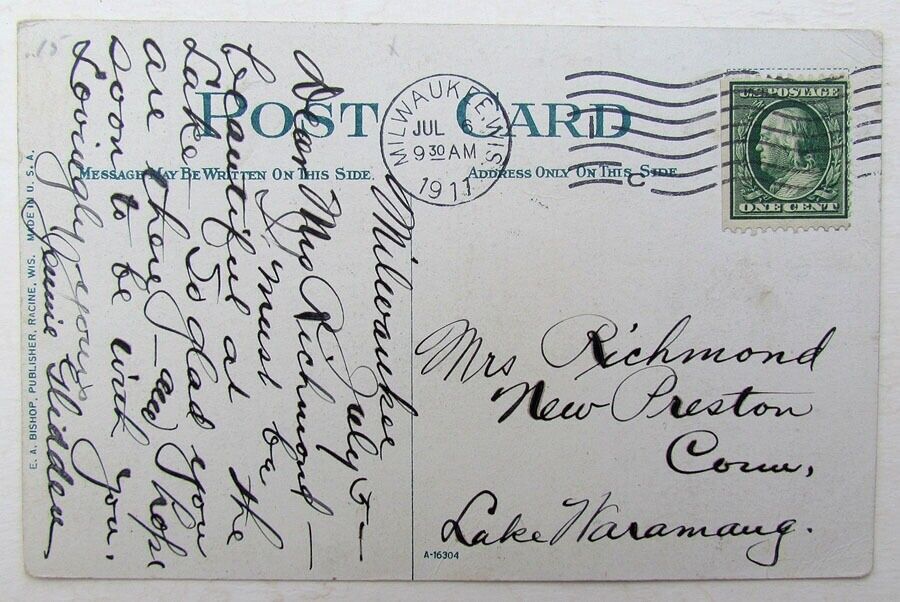 15
POST CARD
MESSAGE MAY BE WRITTEN ON THIS SIDE.
ADDRESS ONLY ON THIS SIDE
MILWAUKEE, WIS.
JUL 6
9 30 AM
1911
U.S. POSTAGE
ONE CENT
Milwaukee
July
Dear Mrs Richmond —
It must be
beautiful at the
Lake — So glad you
are there — and I hope
soon to be with you.
Lovingly yours
Glidden
Mrs Richmond
New Preston
Conn,
Lake Waramaug.
A-16304
E. A. BISHOP, PUBLISHER, RACINE, WIS. MADE IN U. S. A.